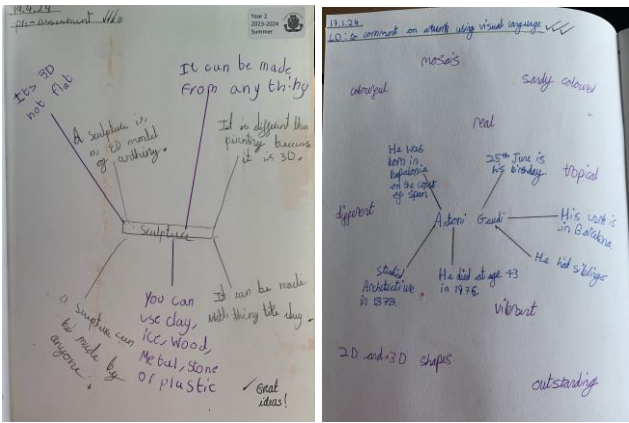 19.4.24
pre-assessment
Year 2
2023-2024
Summer
Its 3D
not flat
It can be made
from any thing
A sculpture is
a 3D model
of anthing.
It is different than
becuse
it is 3D.
Sculpture
a Sculpture can
be made by
anyone.
You can
use clay,
ice, wood,
Metal, stone
or plastic
It can be made
with thing like clay.
Great
ideas!
17.1.24
LO: to comment on artwork using visual language
colourful
sandy coloured
real
He was
born in
on the coast
of spain
25th June is
his birthday
tropical
different
Antoni Gaudi
His work is
in Barcelona
He had siblings
Studied
Architecture
in 1873.
He died at age 43
in 1976.
vibrant
2D and 3D shapes
outstanding